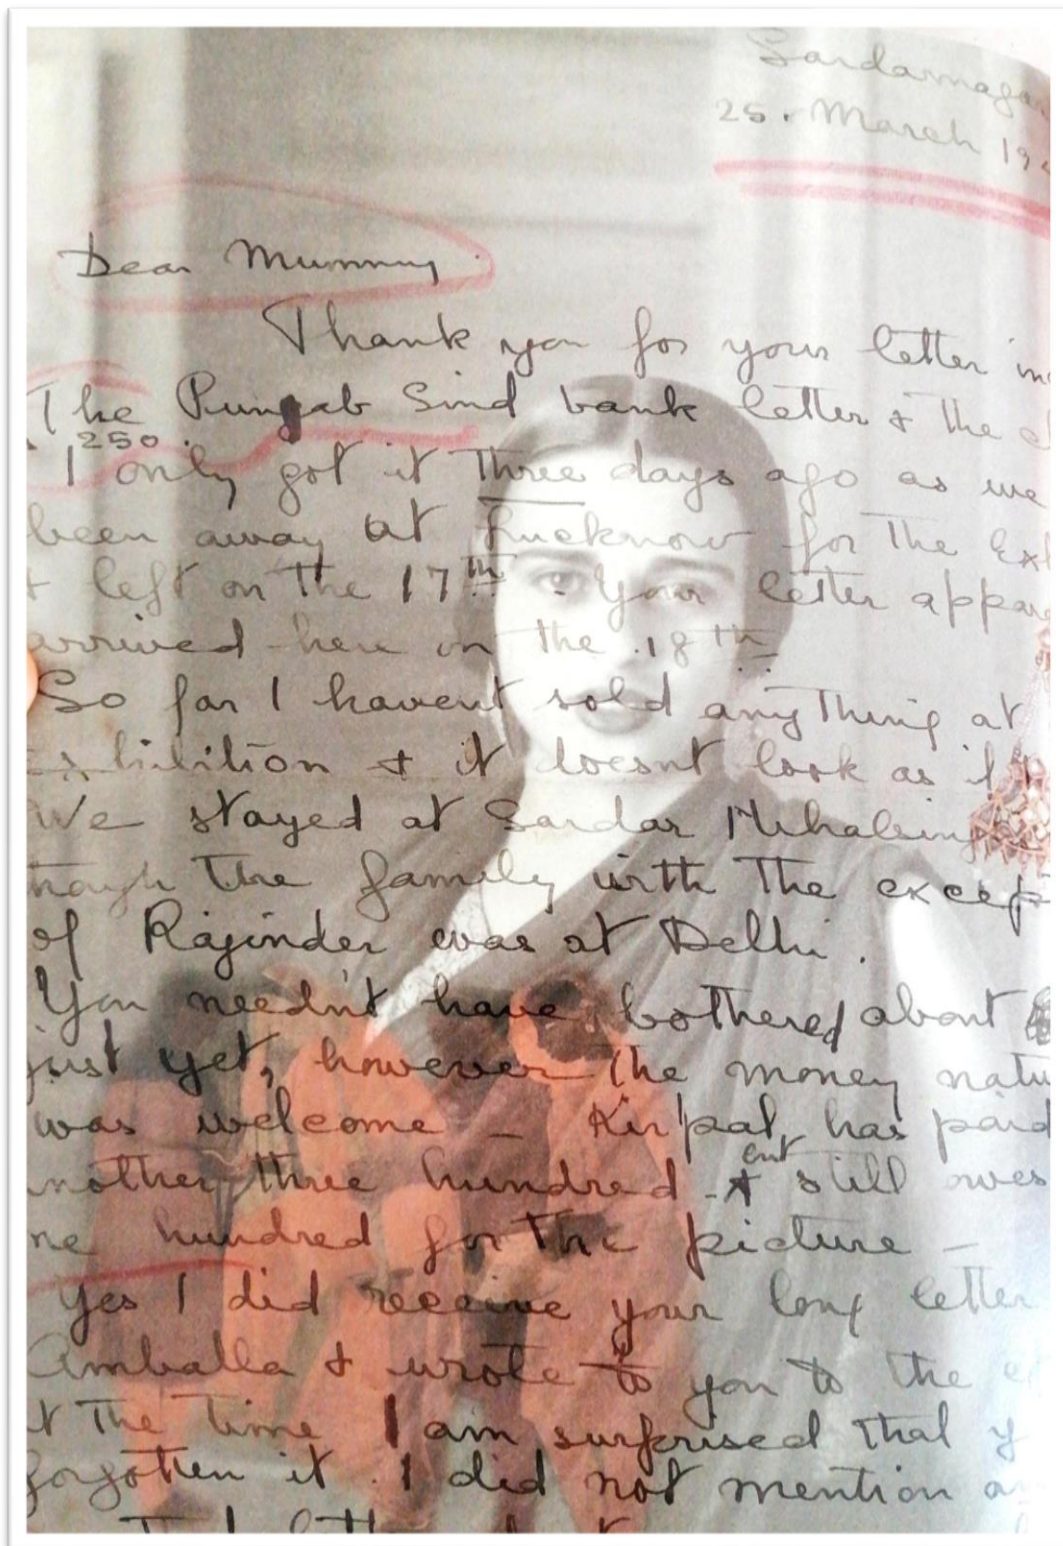 Sardarnagar
25. March 19
Dear Mummy
Thank you for your letter
The Punjab Sind bank letter & the
250.
I only got it three days ago as we
been away at Lucknow for the
& left on the 17th. Your letter appare
arrived here on the 18th
So far I havent sold anything at
hibition & it doesnt look as if
We stayed at Sardar
though the family with the excep
of Rajinder was at Delhi.
You needn't have bothered about
just yet, however the money natu
was welcome – Kirpal has paid
but
nother three hundred & still owes
me hundred for the picture –
Yes I did receive your long letter
Amballa & wrote to you to the
at the time I am surprised that y
forgotten it. I did not mention